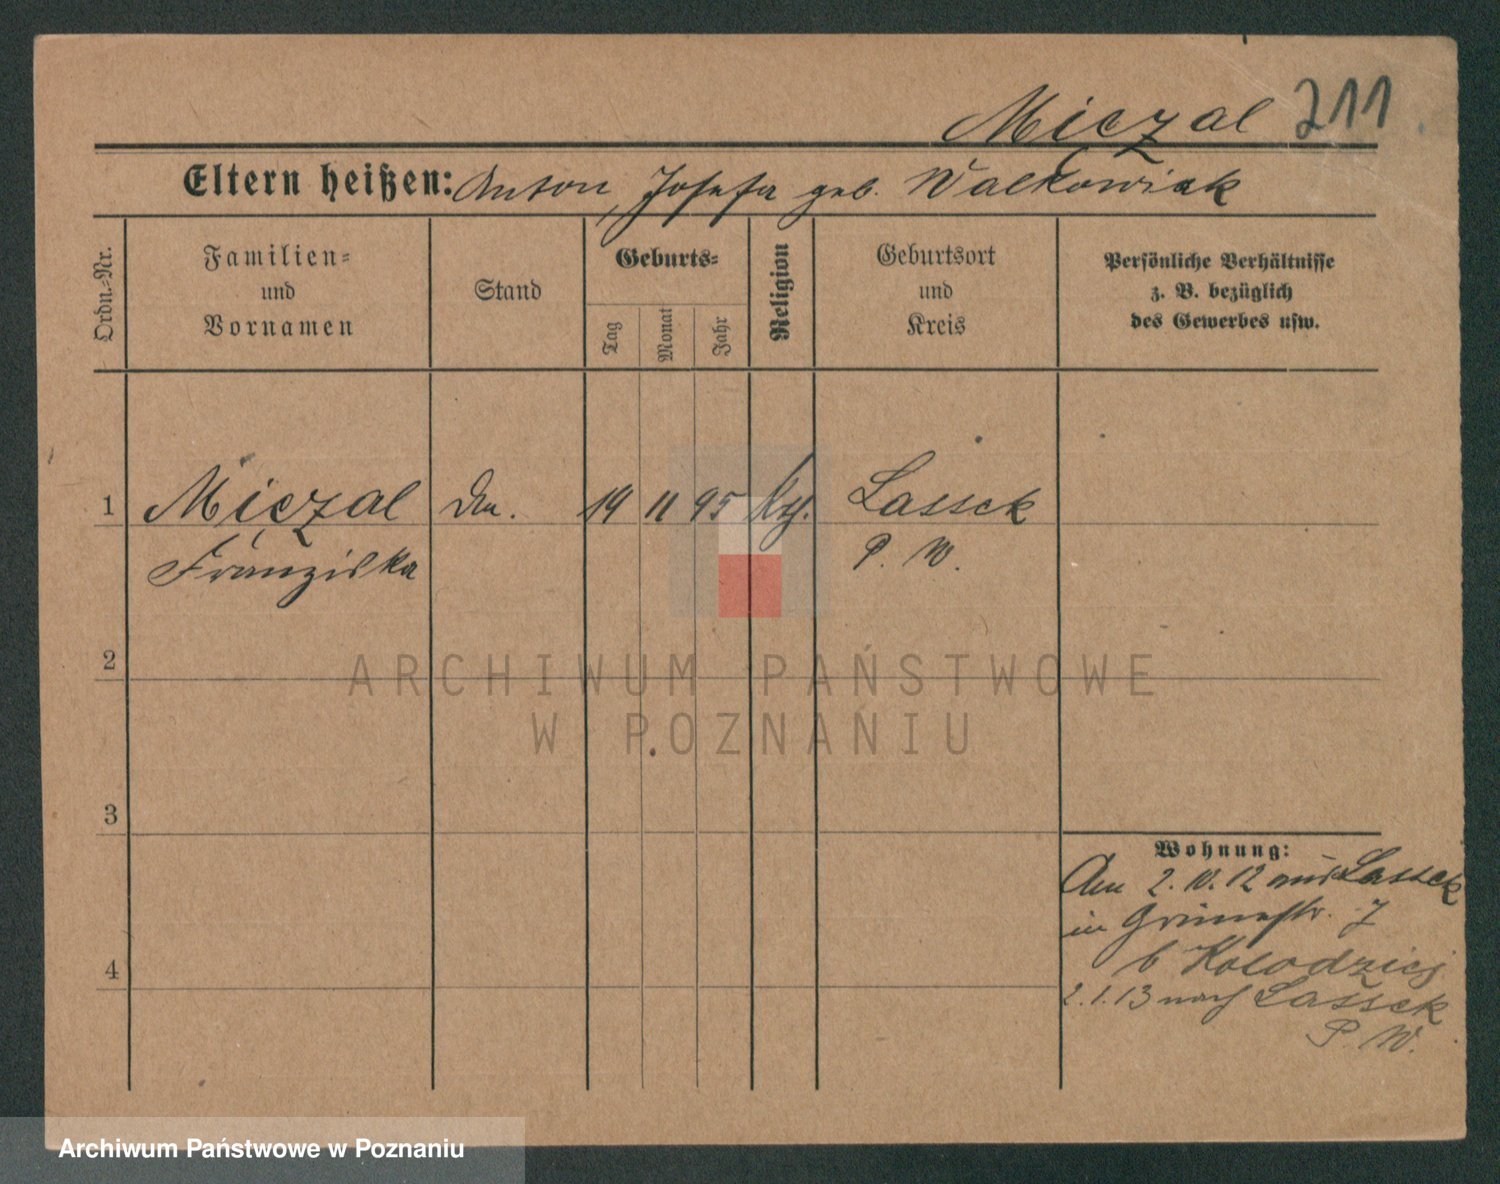 Miczal 211
Eltern heißen: Anton, Josefa geb. Walkowiak
Ordn.-Nr.
Familien-
und
Vornamen
Stand
Geburts-
Tag
Monat
Jahr
Religion
Geburtsort
und
Kreis
Persönliche Verhältnisse
z. B. bezüglich
des Gewerbes usw.
1 Miczal 19 11 95 Lassek
Franziska P. W.
2
3
4
Wohnung:
2. 10. 12 aus Lassek
in 7
b Kolodziej
2.1.13 nach Lassek
P. W.
ARCHIWUM PAŃSTWOWE
W POZNANIU
Archiwum Państwowe w Poznaniu